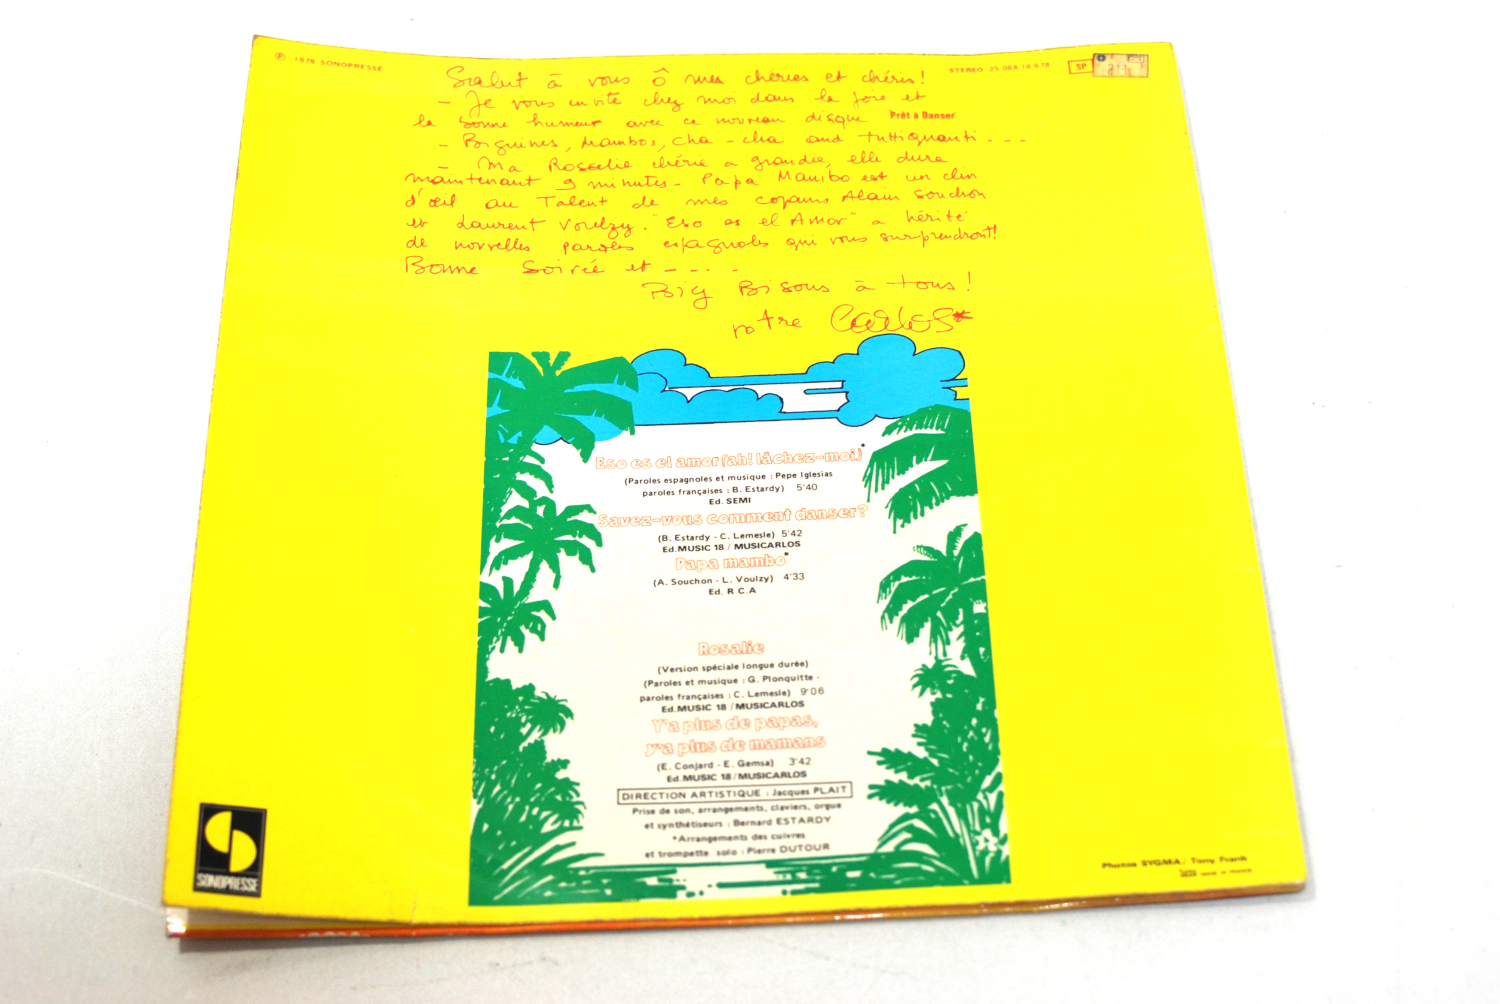 ℗ 1979 SONOPRESSE
STEREO 2S 068-16 678
SP
Salut à vous ô mes chéries et chéris!
- Je vous invite chez moi dans la joie et
la bonne humeur avec ce nouveau disque Prêt à Danser
- Biguines, Mambos, Cha-cha and tuttiquanti...
- Ma Rosalie chérie a grandie, elle dure
maintenant 9 minutes - Papa Mambo est un clin
d'œil au Talent de mes copains Alain Souchon
et Laurent Voulzy. "Eso es el Amor" a hérité
de nouvelles paroles espagnoles qui vous surprendront!
Bonne Soirée et - - - -
Big Bisous à tous!
votre Carlos*
Eso es el amor (ah! lâchez-moi)*
(Paroles espagnoles et musique : Pepe Iglesias
paroles françaises : B. Estardy) 5'40
Ed. SEMI
Savez-vous comment danser?
(B. Estardy - C. Lemesle) 5'42
Ed. MUSIC 18 / MUSICARLOS
Papa mambo*
(A. Souchon - L. Voulzy) 4'33
Ed. R.C.A
Rosalie
(Version spéciale longue durée)
(Paroles et musique : G. Plonquitte -
paroles françaises : C. Lemesle) 9'06
Ed. MUSIC 18 / MUSICARLOS
Y'a plus de papas,
y'a plus de mamans
(E. Conjard - E. Gemsa) 3'42
Ed. MUSIC 18 / MUSICARLOS
DIRECTION ARTISTIQUE : Jacques PLAIT
Prise de son, arrangements, claviers, orgue
et synthétiseurs : Bernard ESTARDY
*Arrangements des cuivres
et trompette solo : Pierre DUTOUR
SONOPRESSE
Photos SYGMA / Tony Frank
MADE IN FRANCE